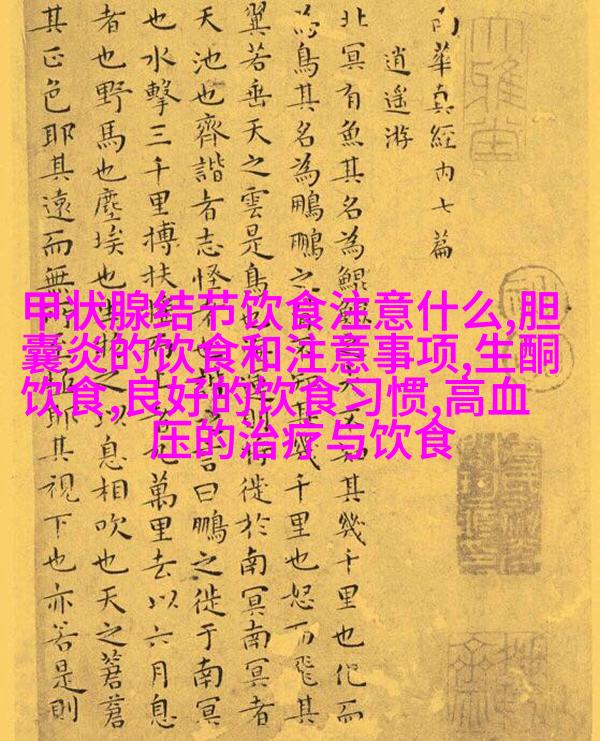 南華真經内七篇
逍遥游
北冥有魚其名為鯤鯤之大不知其幾千里也化而
為鳥其名為鵬鵬之背不知其幾千里也怒而飛其
翼若垂天之雲是鳥也海運則将徙於南冥南冥者
天池也齊諧者志怪者也諧之言曰鵬之徙于南冥
也水擊三千里搏扶摇而上者九萬里去以六月息
者也野馬也塵埃也生物之以息相吹也天之蒼蒼
其正色耶其遠而無所至極耶其視下也亦若是則
甲状腺结节饮食注意什么,胆
囊炎的饮食和注意事项,生酮
饮食,良好的饮食习惯,高血
压的治疗与饮食